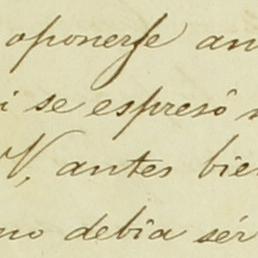 oponerse an
i se espresó
V, antes bie
no debia sér